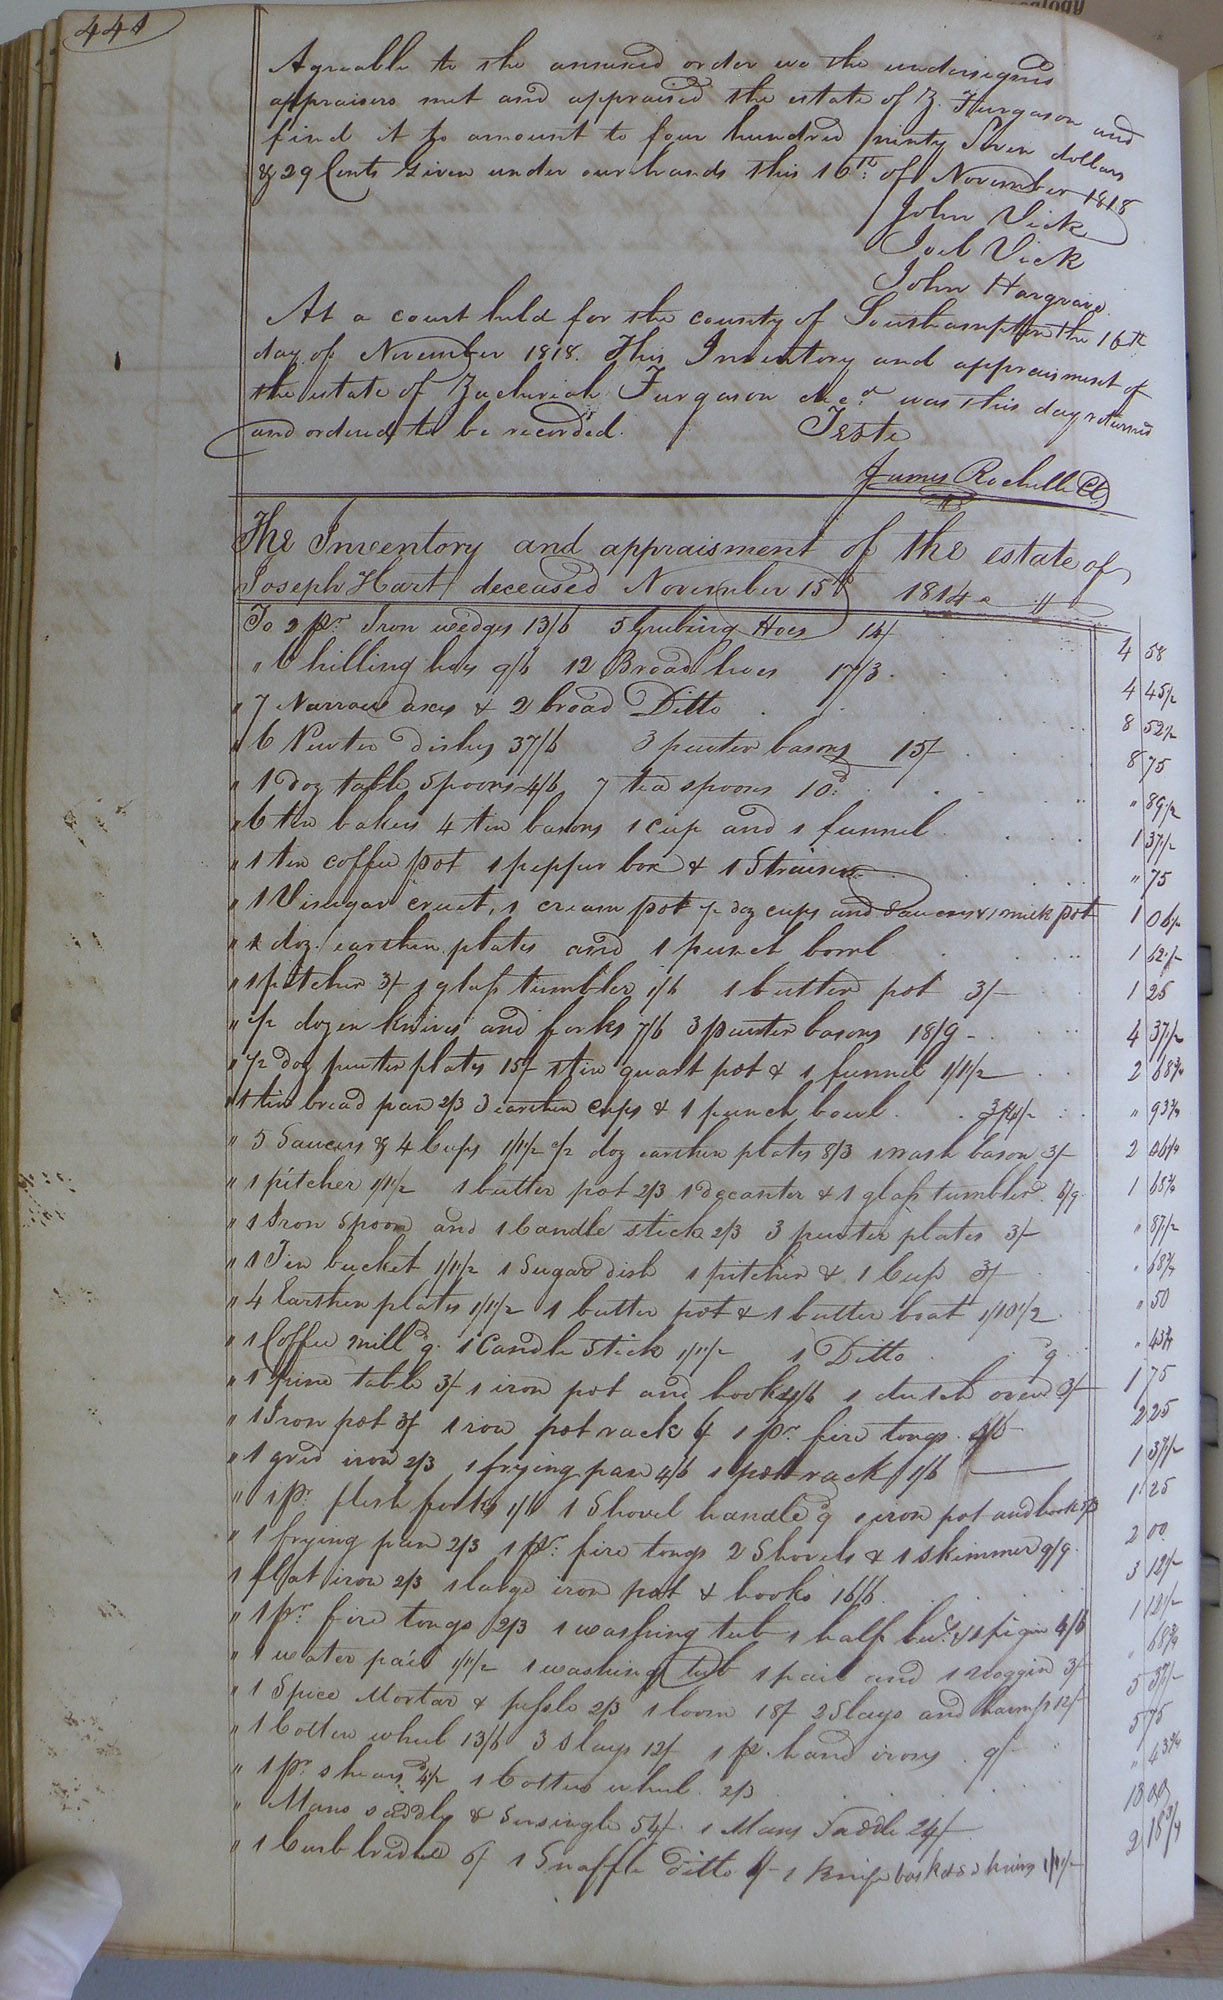 441
Agreable to the annexed order we the undersigned
appraisers met and appraised the estate of Z. Furgason and
find it to amount to four hundred ninty Seven dollars
& 29 Cents Given under our hands this 16th of November 1818
John Vick
Joel Vick
John Hargrave
At a court held for the county of Southampton the 16th
day of November 1818. This Inventory and appraisment of
the estate of Zacheriah Furgason decd was this day returned
and ordered to be recorded. Teste
James Rochelle Cl
The Inventory and appraisment of the estate of
Joseph Hart deceased November 15th 1814
To 2 pr Iron wedges 13/6 5 Grubing Hoes 14/ 4 58
" 6 hilling hoes 9/6 12 Broad hoes 17/3 4 45 1/2
" 7 Narrow axes & 2 broad Ditto 8 52 1/2
" 6 Pewter dishes 37/6 3 pewter basons 15/ 8 75
" 1 doz table spoons 4/6 7 tea spoons 10d " 89 1/2
" 6 tin bakers 4 tin basons 1 cup and 1 funnel 1 37 1/2
" 1 tin coffee pot 1 pepper box & 1 Strainer " 75
" 1 Vinegar cruet, 1 cream pot 1/2 doz cups and Saucers & 1 milk pot 1 06 1/2
" 1 doz. earthen plates and 1 punch bowl 1 62 1/2
" 1 pitcher 3/ 1 glass tumbler 1/6 1 butter pot 3/ 1 25
" 1/2 dozen knives and forks 7/6 3 pewter basons 18/9 4 37 1/2
" 1/2 doz pewter plates 15/ 1 tin quart pot & 1 funnel 1/1 1/2 2 68 3/4
" 1 tin bread pan 2/3 3 earthen cups & 1 punch bowl 3/4 1/2 " 93 3/4
" 5 Saucers & 4 Cups 1/1 1/2 1/2 doz earthen plates 8/3 1 wash bason 3/ 2 06 1/4
" 1 pitcher 1/1 1/2 1 butter pot 2/3 1 decanter & 1 glass tumbler 6/9 1 68 3/4
" 1 Iron Spoon and 1 Candle stick 2/3 3 pewter plates 3/ " 87 1/2
" 1 Tin bucket 1/1 1/2 1 Sugar dish 1 pitcher & 1 Cup 3/ " 68 3/4
" 4 Earthen plates 1/1 1/2 1 butter pot & 1 butter boat 1/10 1/2 " 50
" 1 Coffee mill 9d 1 Candle Stick 1/1 1/2 1 Ditto 9d " 43 3/4
" 1 pine table 3/ 1 iron pot and hooks 4/6 1 dutch oven 3/ 1 75
" 1 Iron pot 3/ 1 iron pot rack 6/ 1 pr fire tongs 4/6 2 25
" 1 grid iron 2/3 1 frying pan 4/6 1 pot rack 1/6 1 37 1/2
" 1 pr flesh forks 1/6 1 Shovel handle 9d 1 iron pot and hooks 5/3 1 25
" 1 frying pan 2/3 1 pr fire tongs 2 Shovels & 1 skimmer 9/9 2 00
1 flat iron 2/3 1 large iron pot & hooks 16/6 3 12 1/2
" 1 pr fire tongs 2/3 1 washing tub 1 half bu. & 1 pigin 4/6 1 12 1/2
" 1 water pail 1/1 1/2 1 washing tub 1 pail and 1 noggin 3/ " 68 3/4
" 1 Spice Mortar & pessle 2/3 1 loom 18/ 2 Slays and harness 12/ 5 37 1/2
" 1 Cotton wheel 13/6 3 Slays 12/ 1 p. hand irons 9/ 5 75
" 1 pr shears 4 1/2d 1 Cotton wheel 2/3 " 43 3/4
" Mans saddle & Sursingle 54/ 1 Mans Saddle 24/ 13 00
" 1 Curb bridle 6/ 1 Snaffle ditto 6/ 1 knife basket & 2 knives 1/1 1/2 2 18 3/4